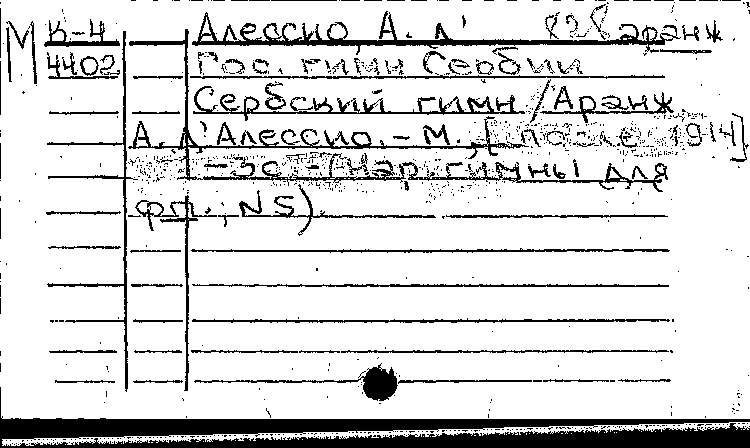 М К-4 Алессио, А. д' 828 аранж.
4402 Гос. гимн Сербии
Сербский гимн / Аранж.
А. д'Алессио. - М., [после 1914].
- 3с. - (Нар. гимны для
фп.; N 5).